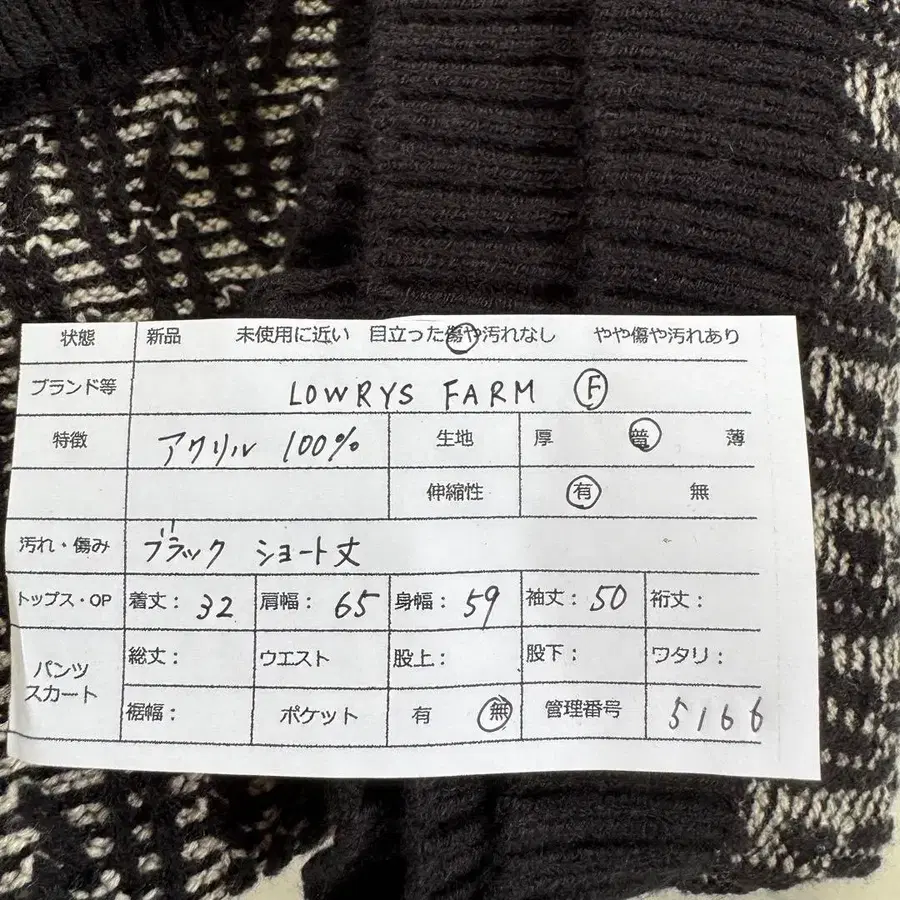 状態 新品 未使用に近い 目立った傷や汚れなし やや傷や汚れあり
ブランド等 LOWRYS FARM F
特徴 アクリル 100% 生地 厚 普 薄
伸縮性 有 無
汚れ・傷み ブラック ショート丈
トップス・OP 着丈: 32 肩幅: 65 身幅: 59 袖丈: 50 裄丈:
パンツ スカート 総丈: ウエスト 股上: 股下: ワタリ:
裾幅: ポケット 有 無 管理番号 5166